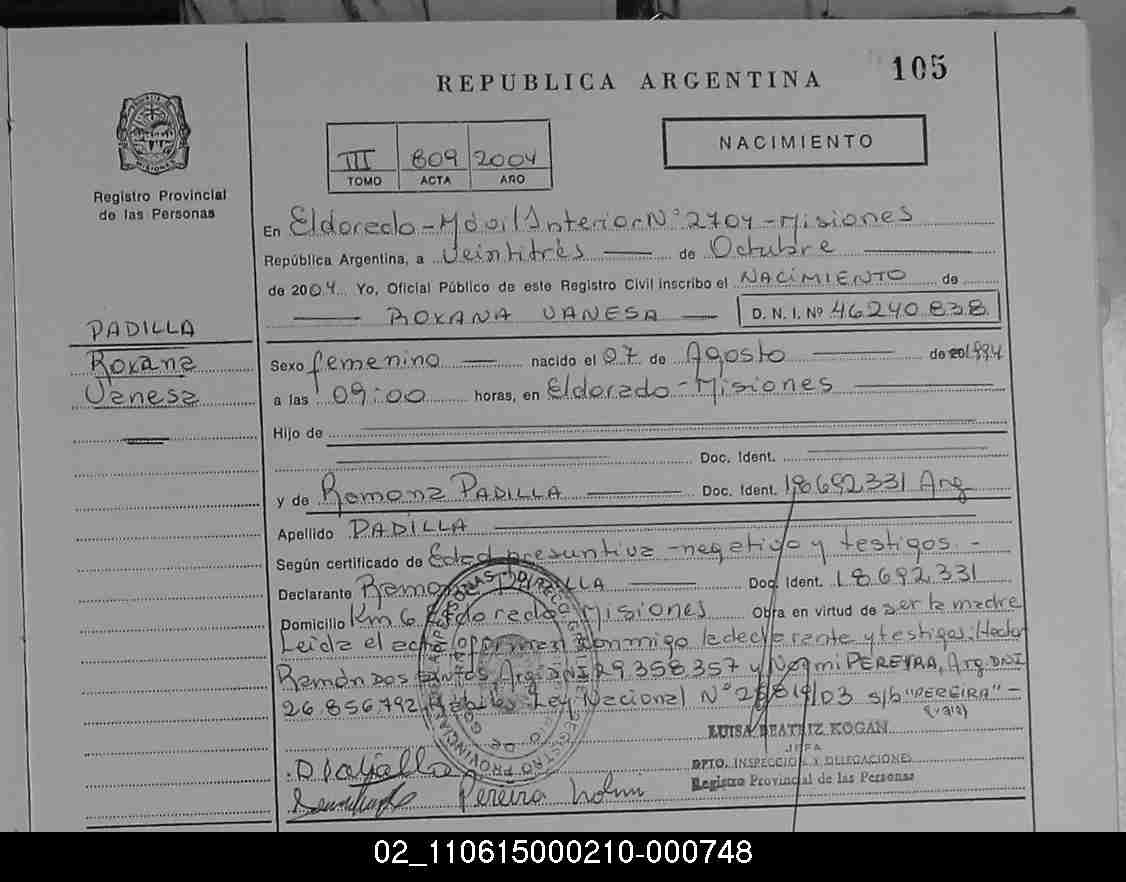 REPUBLICA ARGENTINA
105
Registro Provincial
de las Personas
III 809 2004
TOMO ACTA AÑO
NACIMIENTO
En Eldorado - Móvil Interior N° 2704 - Misiones
República Argentina, a Veintitrés de Octubre
de 2004 Yo, Oficial Público de este Registro Civil inscribo el NACIMIENTO de
ROXANA VANESA D. N. I. Nº 46240838
PADILLA
Roxana
Vanesa
Sexo femenino nacido el 07 de Agosto de 1994
a las 09:00 horas, en Eldorado - Misiones
Hijo de
Doc. Ident.
y de Ramona PADILLA Doc. Ident. 18692331 Arg
Apellido PADILLA
Según certificado de Edad presuntiva - negativo y testigos. -
Declarante Ramona PADILLA Doc. Ident. 18.692.331
Domicilio Km 6 Eldorado Misiones Obra en virtud de ser la madre
Leída el acta, firman conmigo la declarante y testigos: Hector
Ramón Dos Santos, Arg. DNI 29.358.357 y Noemi PEREYRA, Arg. DNI
26.856.792, Ley Nacional N° 25819/03 s/b "PEREIRA" -
LUISA BEATRIZ KOGAN
JEFA
DPTO. INSPECCION Y DELEGACIONES
Registro Provincial de las Personas
Pereira
02_110615000210-000748